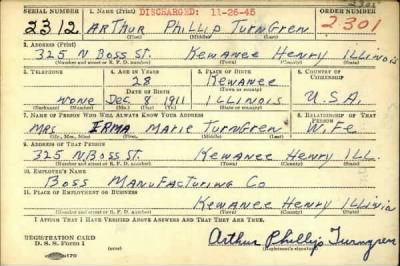 SERIAL NUMBER 1. NAME (Print) DISCHARGED: 11-26-45 ORDER NUMBER
2312 ARTHUR PHILLIP TURNGREN 2301
(First) (Middle) (Last)
2. ADDRESS (Print)
325 N BOSS ST. KEWANEE HENRY ILLINOIS
(Number and street or R. F. D. number) (Town) (County) (State)
3. TELEPHONE 4. AGE IN YEARS 5. PLACE OF BIRTH 6. COUNTRY OF CITIZENSHIP
28 KEWANEE
DATE OF BIRTH (Town or county)
NONE DEC 8 1911 ILLINOIS U.S.A.
(Exchange) (Number) (Mo.) (Day) (Yr.) (State or country)
7. NAME OF PERSON WHO WILL ALWAYS KNOW YOUR ADDRESS 8. RELATIONSHIP OF THAT PERSON
MRS IRMA MARIE TURNGREN WIFE
(Mr., Mrs., Miss) (First) (Middle) (Last)
9. ADDRESS OF THAT PERSON
325 N. BOSS ST. KEWANEE HENRY ILL.
(Number and street or R. F. D. number) (Town) (County) (State)
10. EMPLOYER'S NAME
BOSS MANUFACTURING CO
11. PLACE OF EMPLOYMENT OR BUSINESS
KEWANEE HENRY ILLINIO
(Number and street or R. F. D. number) (Town) (County) (State)
I AFFIRM THAT I HAVE VERIFIED ABOVE ANSWERS AND THAT THEY ARE TRUE.
REGISTRATION CARD
D. S. S. Form 1
Arthur Phillip Turngren
(Registrant's signature)